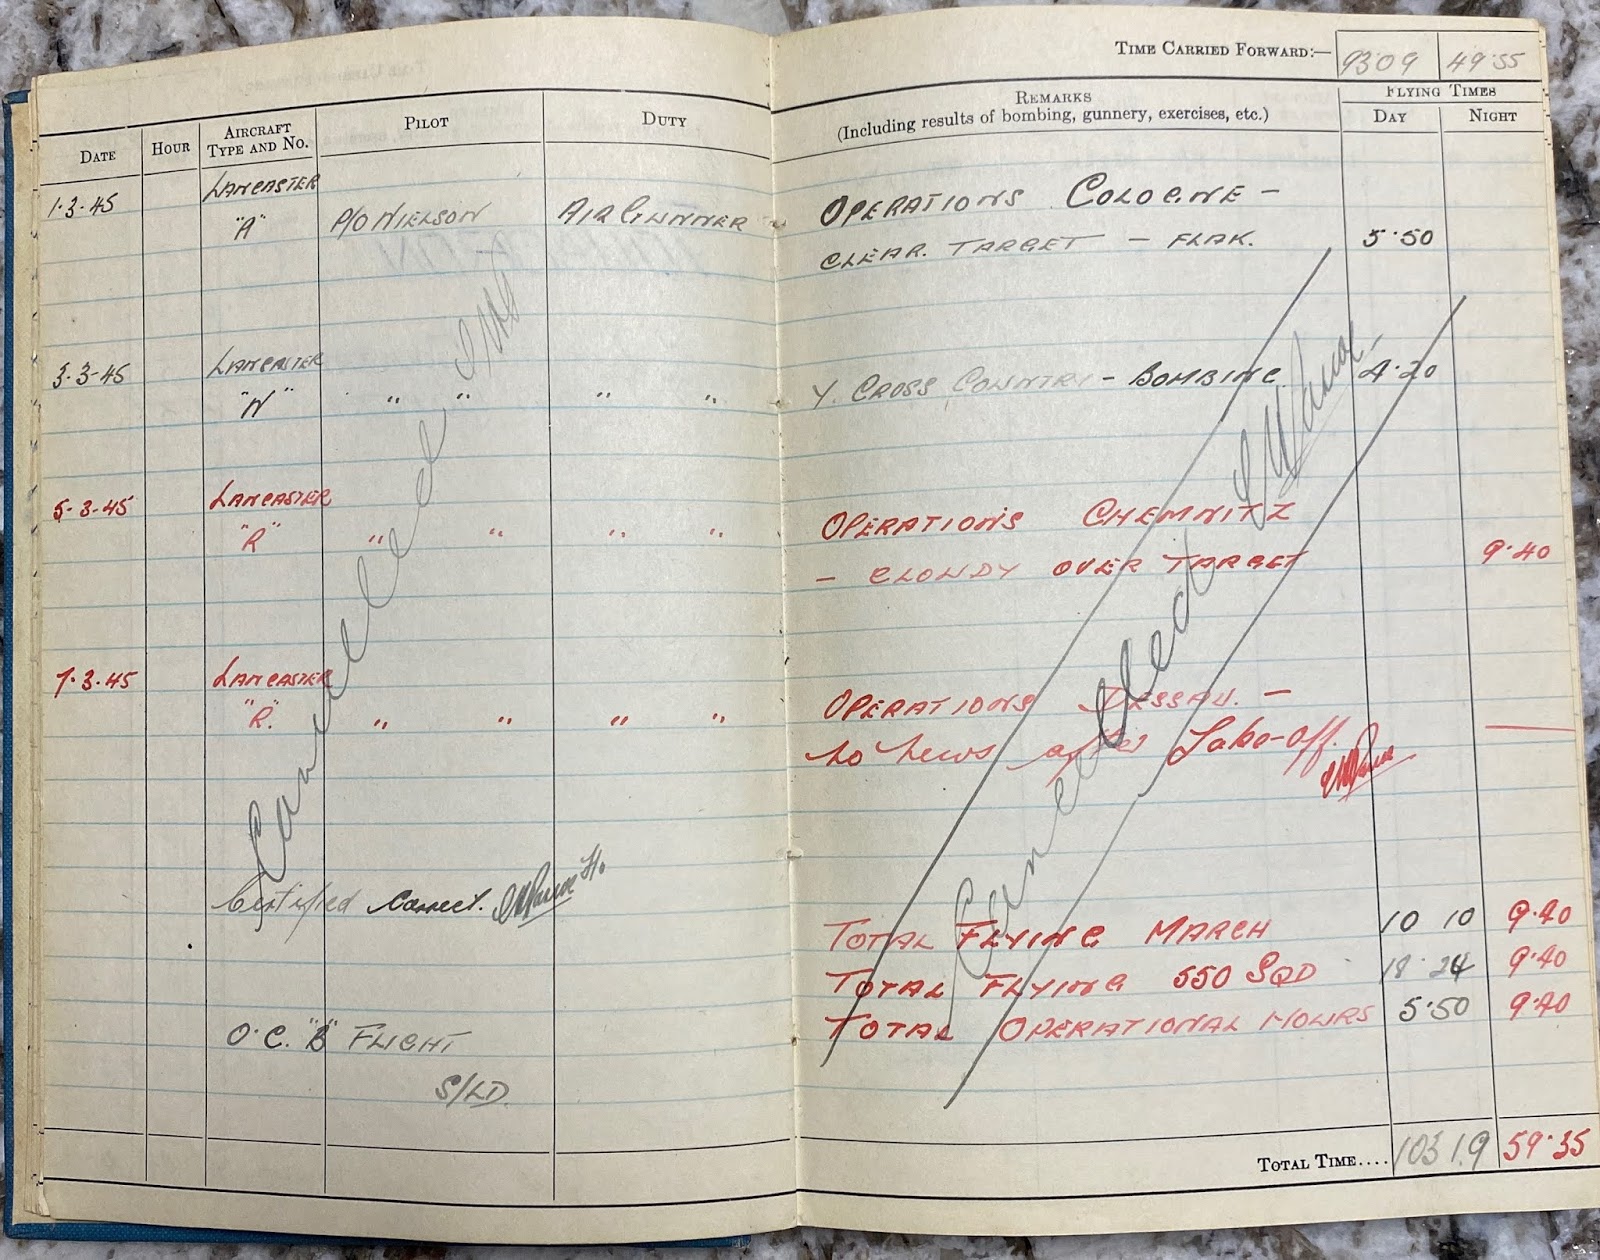 TIME CARRIED FORWARD:— 93 09 49·55
DATE HOUR AIRCRAFT TYPE AND NO. PILOT DUTY REMARKS FLYING TIMES
(Including results of bombing, gunnery, exercises, etc.) DAY NIGHT
1·3·45 LANCASTER "A" P/O NIELSON AIR GUNNER OPERATIONS COLOGNE –
CLEAR TARGET – FLAK. 5·50
3·3·45 LANCASTER "N" " " " " Y. CROSS COUNTRY – BOMBING 4·20
5·3·45 LANCASTER "R" " " " " OPERATIONS CHEMNITZ
– CLOUDY OVER TARGET 9·40
7·3·45 LANCASTER "R" " " " " OPERATIONS DESSAU. –
no news after Take-off. —
Cancelled
Cancelled
Certified Correct.
TOTAL FLYING MARCH 10 10 9·40
TOTAL FLYING 550 SQD 18 24 9·40
TOTAL OPERATIONAL HOURS 5·50 9·40
O.C. "B" FLIGHT
S/LD.
TOTAL TIME.... 103 19 59·35